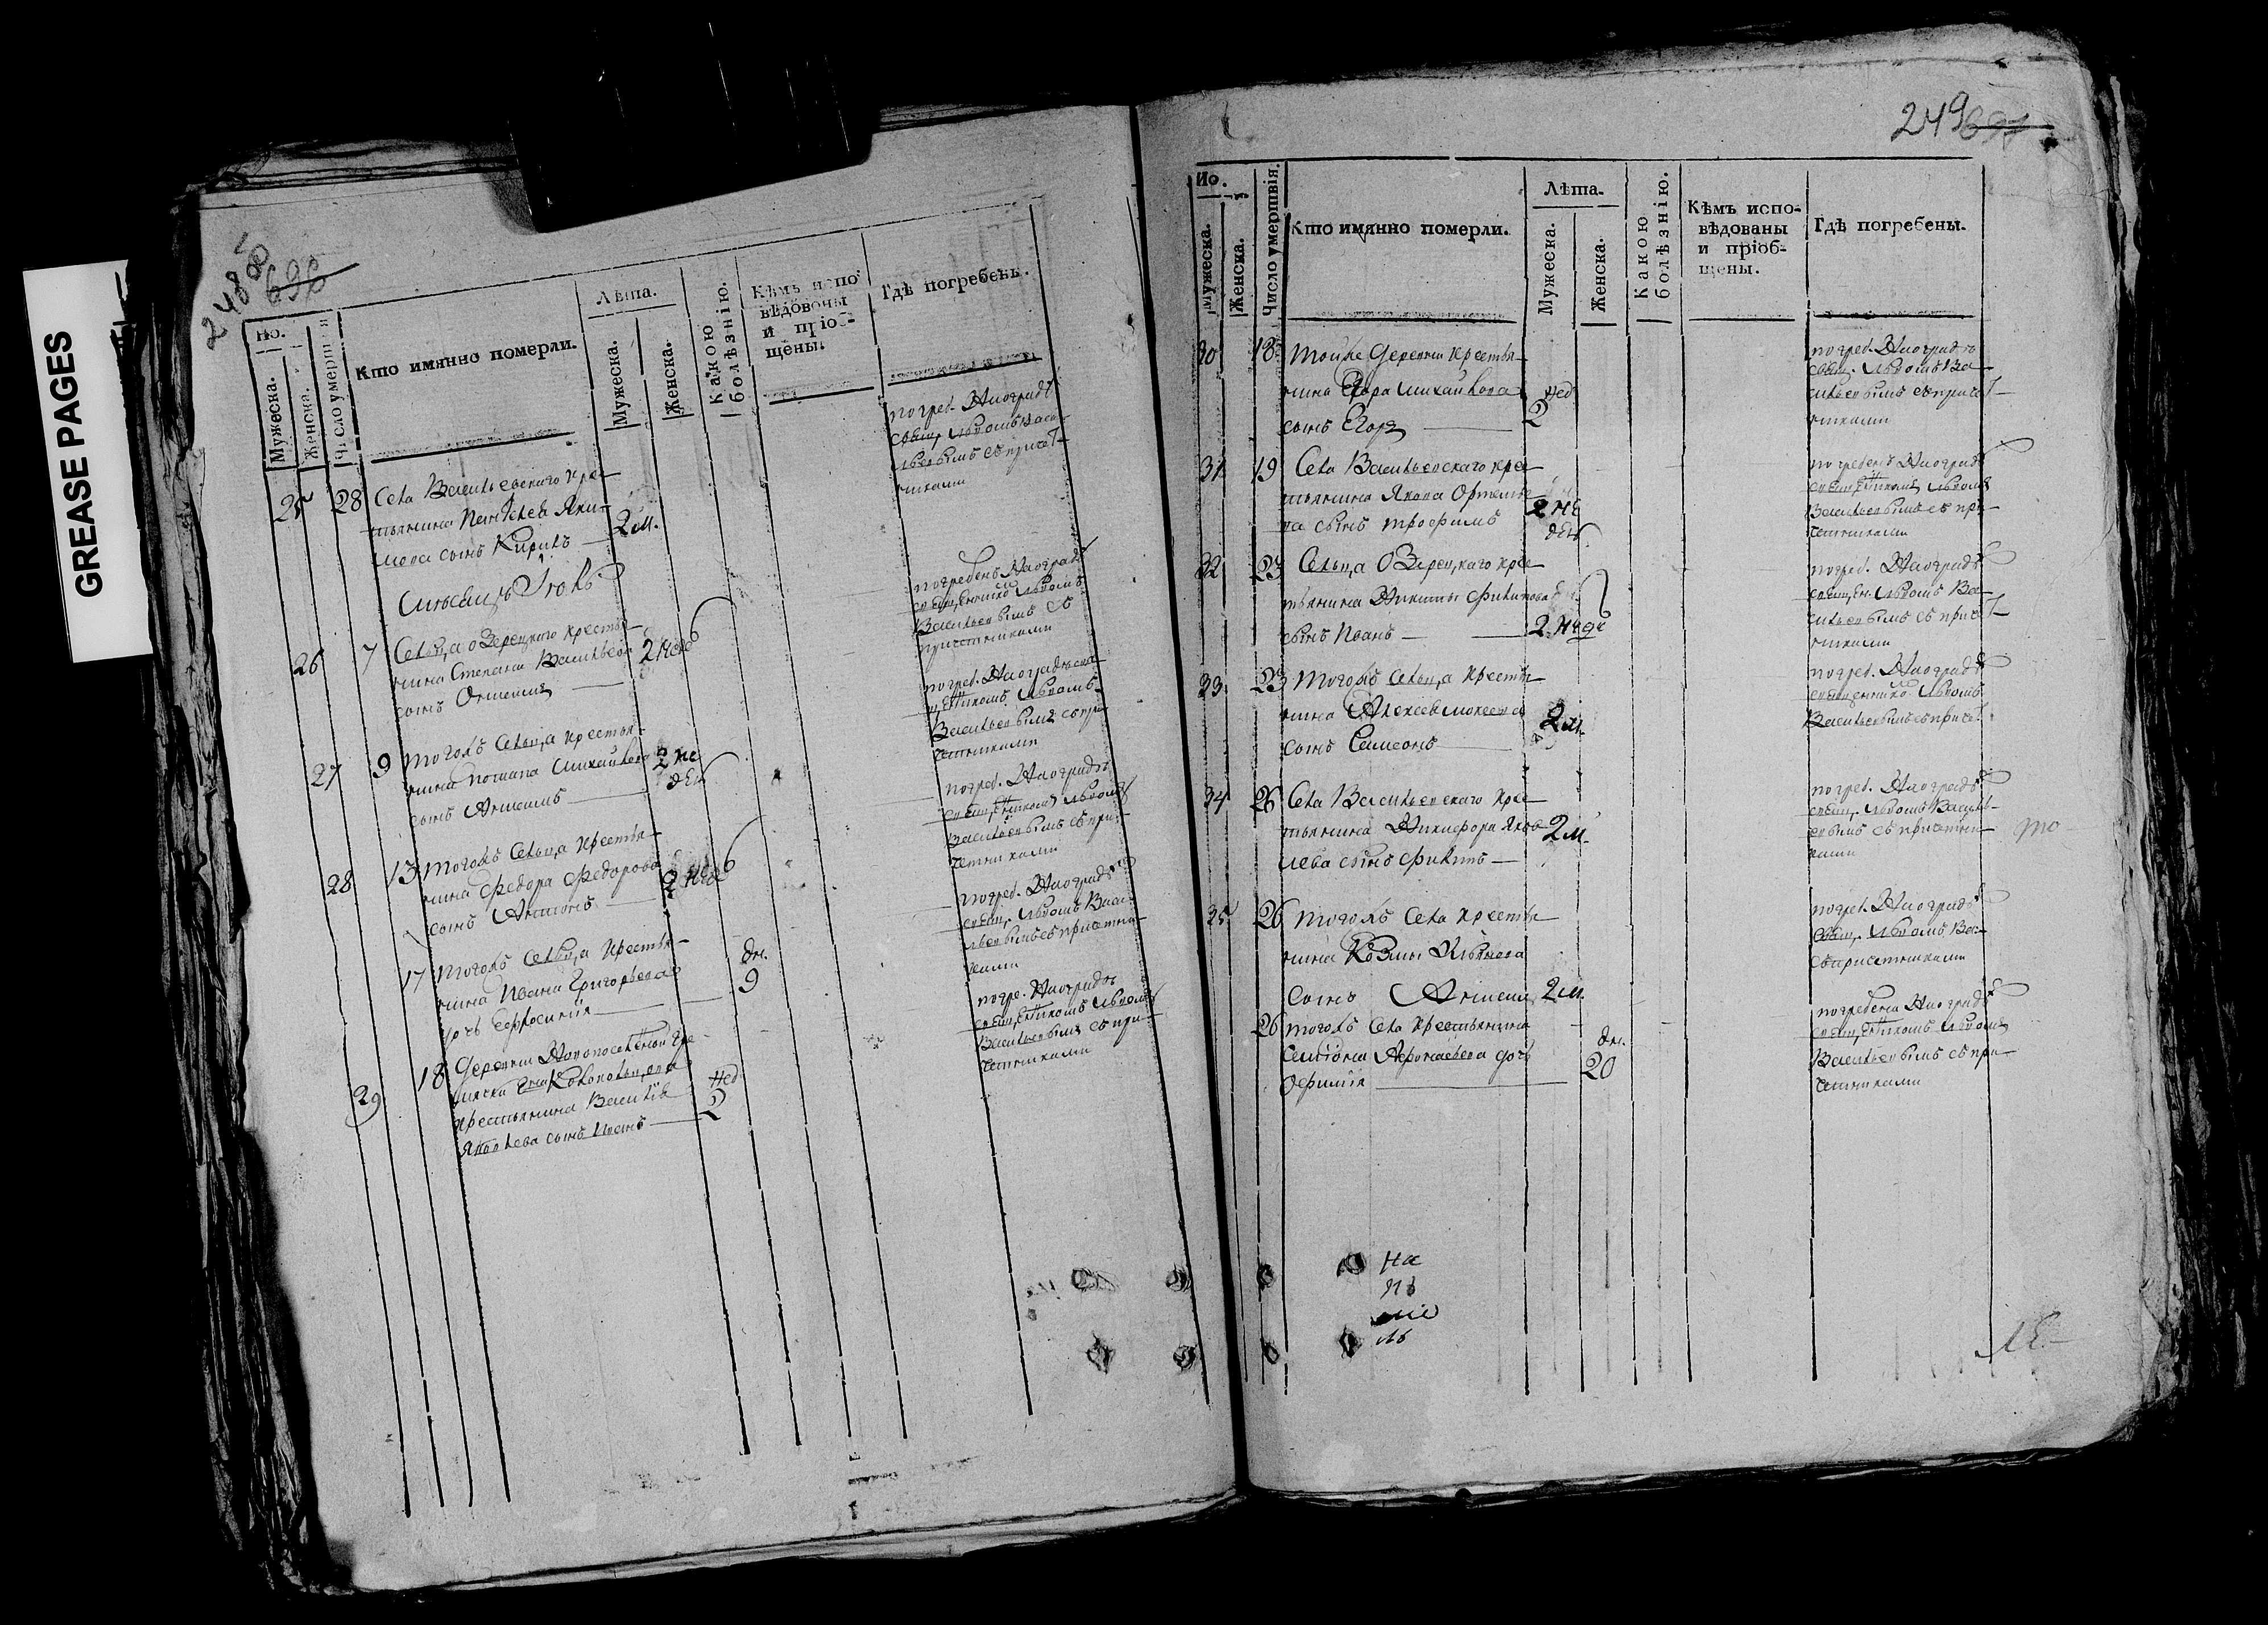 GREASE PAGES
248
698
Но.
Мужеска.
Женска.
Число умершия
Кто имянно померли.
Лѣта.
Мужеска.
Женска.
Какою болѣзнію.
Кѣмъ испо
вѣдованы
и пріоб-
щены.
Гдѣ погребены.
25 28 Села Васильевскаго кре-
стьянина
мова сынъ Кирилъ — 2 м.
погреб. Наоградѣ
свящ. Львомъ Васи
льевымъ съ причет-
никами
Мѣсяцъ Iюль
26 7 Сельца Озерецкаго крестья-
нина Степана Васильева 2 неде
сынъ
погребенъ Наоградѣ
священнико Львомъ
Васильевымъ съ
причетниками
27 9 Тогожъ Сельца крестья-
нина Потапа Михайлова 2 не
дели
сынъ Артемъ
погреб. Наоградѣ свя
щенникомъ Львомъ
Васильевымъ съ при
четниками
28 13 Тогожъ Сельца крестья-
нина Федора Федорова 2 неде
сынъ Антонъ
погреб. Наоградѣ
священникомъ Львомъ
Васильевымъ съ при-
четниками
17 Тогожъ Сельца крестья-
нина Ивана Григорьева дн.
дочь Ефросинія — 9
погреб. Наоградѣ
свящ. Львомъ Васи
льевымъ съ причетни-
ками
29 18 Деревни
крестьянина Василія нед
Яковлева сынъ Иванъ — 2
погре. Наоградѣ
священникомъ Львомъ
Васильевымъ съ при-
четниками
249
697
Но.
Мужеска.
Женска.
Число умершвія.
Кто имянно померли.
Лѣта.
Мужеска.
Женска.
Какою
болѣзнію.
Кѣмъ испо-
вѣдованы
и пріоб-
щены.
Гдѣ погребены.
30 18 Тойже Деревни крестья-
нина Егора Михайлова нед
сынъ Егоръ — 2
погреб. Наоградѣ
свящ. Львомъ Ва-
сильевымъ съ причет-
никами
31 19 Села Васильевскаго кре-
стьянина Якова Артемье
ва сынъ Трофимъ 2 не
дели
погребенъ Наоградѣ
священникомъ Львомъ
Васильевымъ съ при-
четниками
32 23 Сельца Озерецкаго кре-
стьянина Никиты Филипова
сынъ Иванъ — 2 неде
погреб. Наоградѣ
священ. Львомъ Ва-
сильевымъ съ причет-
никами
33 23 Тогожъ Сельца крестья-
нина Алексея Моисеева
сынъ Самсонъ — 2 м.
погреб. Наоградѣ
священнико Львомъ
Васильевымъ съ причет.
34 26 Села Васильевскаго кре-
стьянина Никифора Яков-
лева сынъ Филипъ — 2 м.
погреб. Наоградѣ
свящ. Львомъ Василь-
евымъ съ причетни-
ками
то
35 26 Тогожъ Села крестья-
нина Козмы
сынъ 2 м.
погреб. Наоградѣ
свящ. Львомъ Ва-
съ причетниками
26 Тогожъ Села крестьянина
Симiона Афонасьева дочь дн.
Офимія — 20
погребена Наоградѣ
священникомъ Львомъ
Васильевымъ съ при-
четниками
на